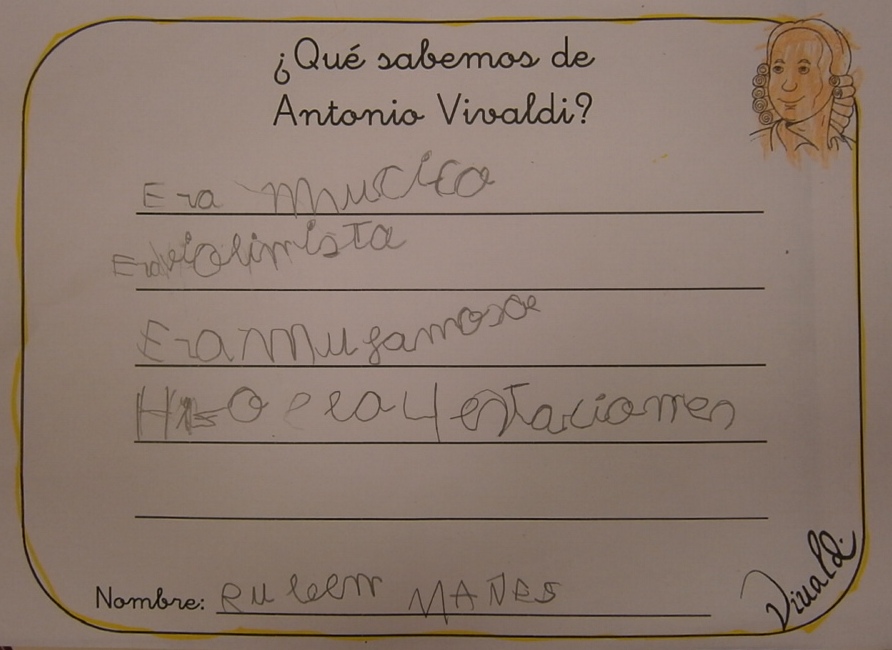 ¿Qué sabemos de
Antonio Vivaldi?
Era mucico
Era violinista
Era mu famoso
Hizo las 4 estaciones
Nombre: RUBEN MAÑES
Vivaldi